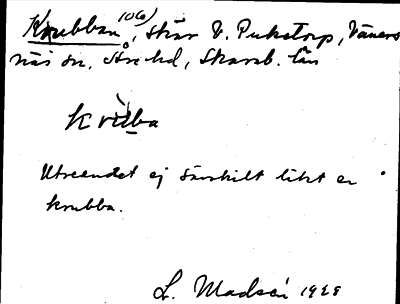 Krubban (06), Skär V. Pukstorp, Väners
näs sn, Åse hd, Skarab. län
krùbba
Utseendet ej särskilt likt en
krubba.
L. Madsén 1928